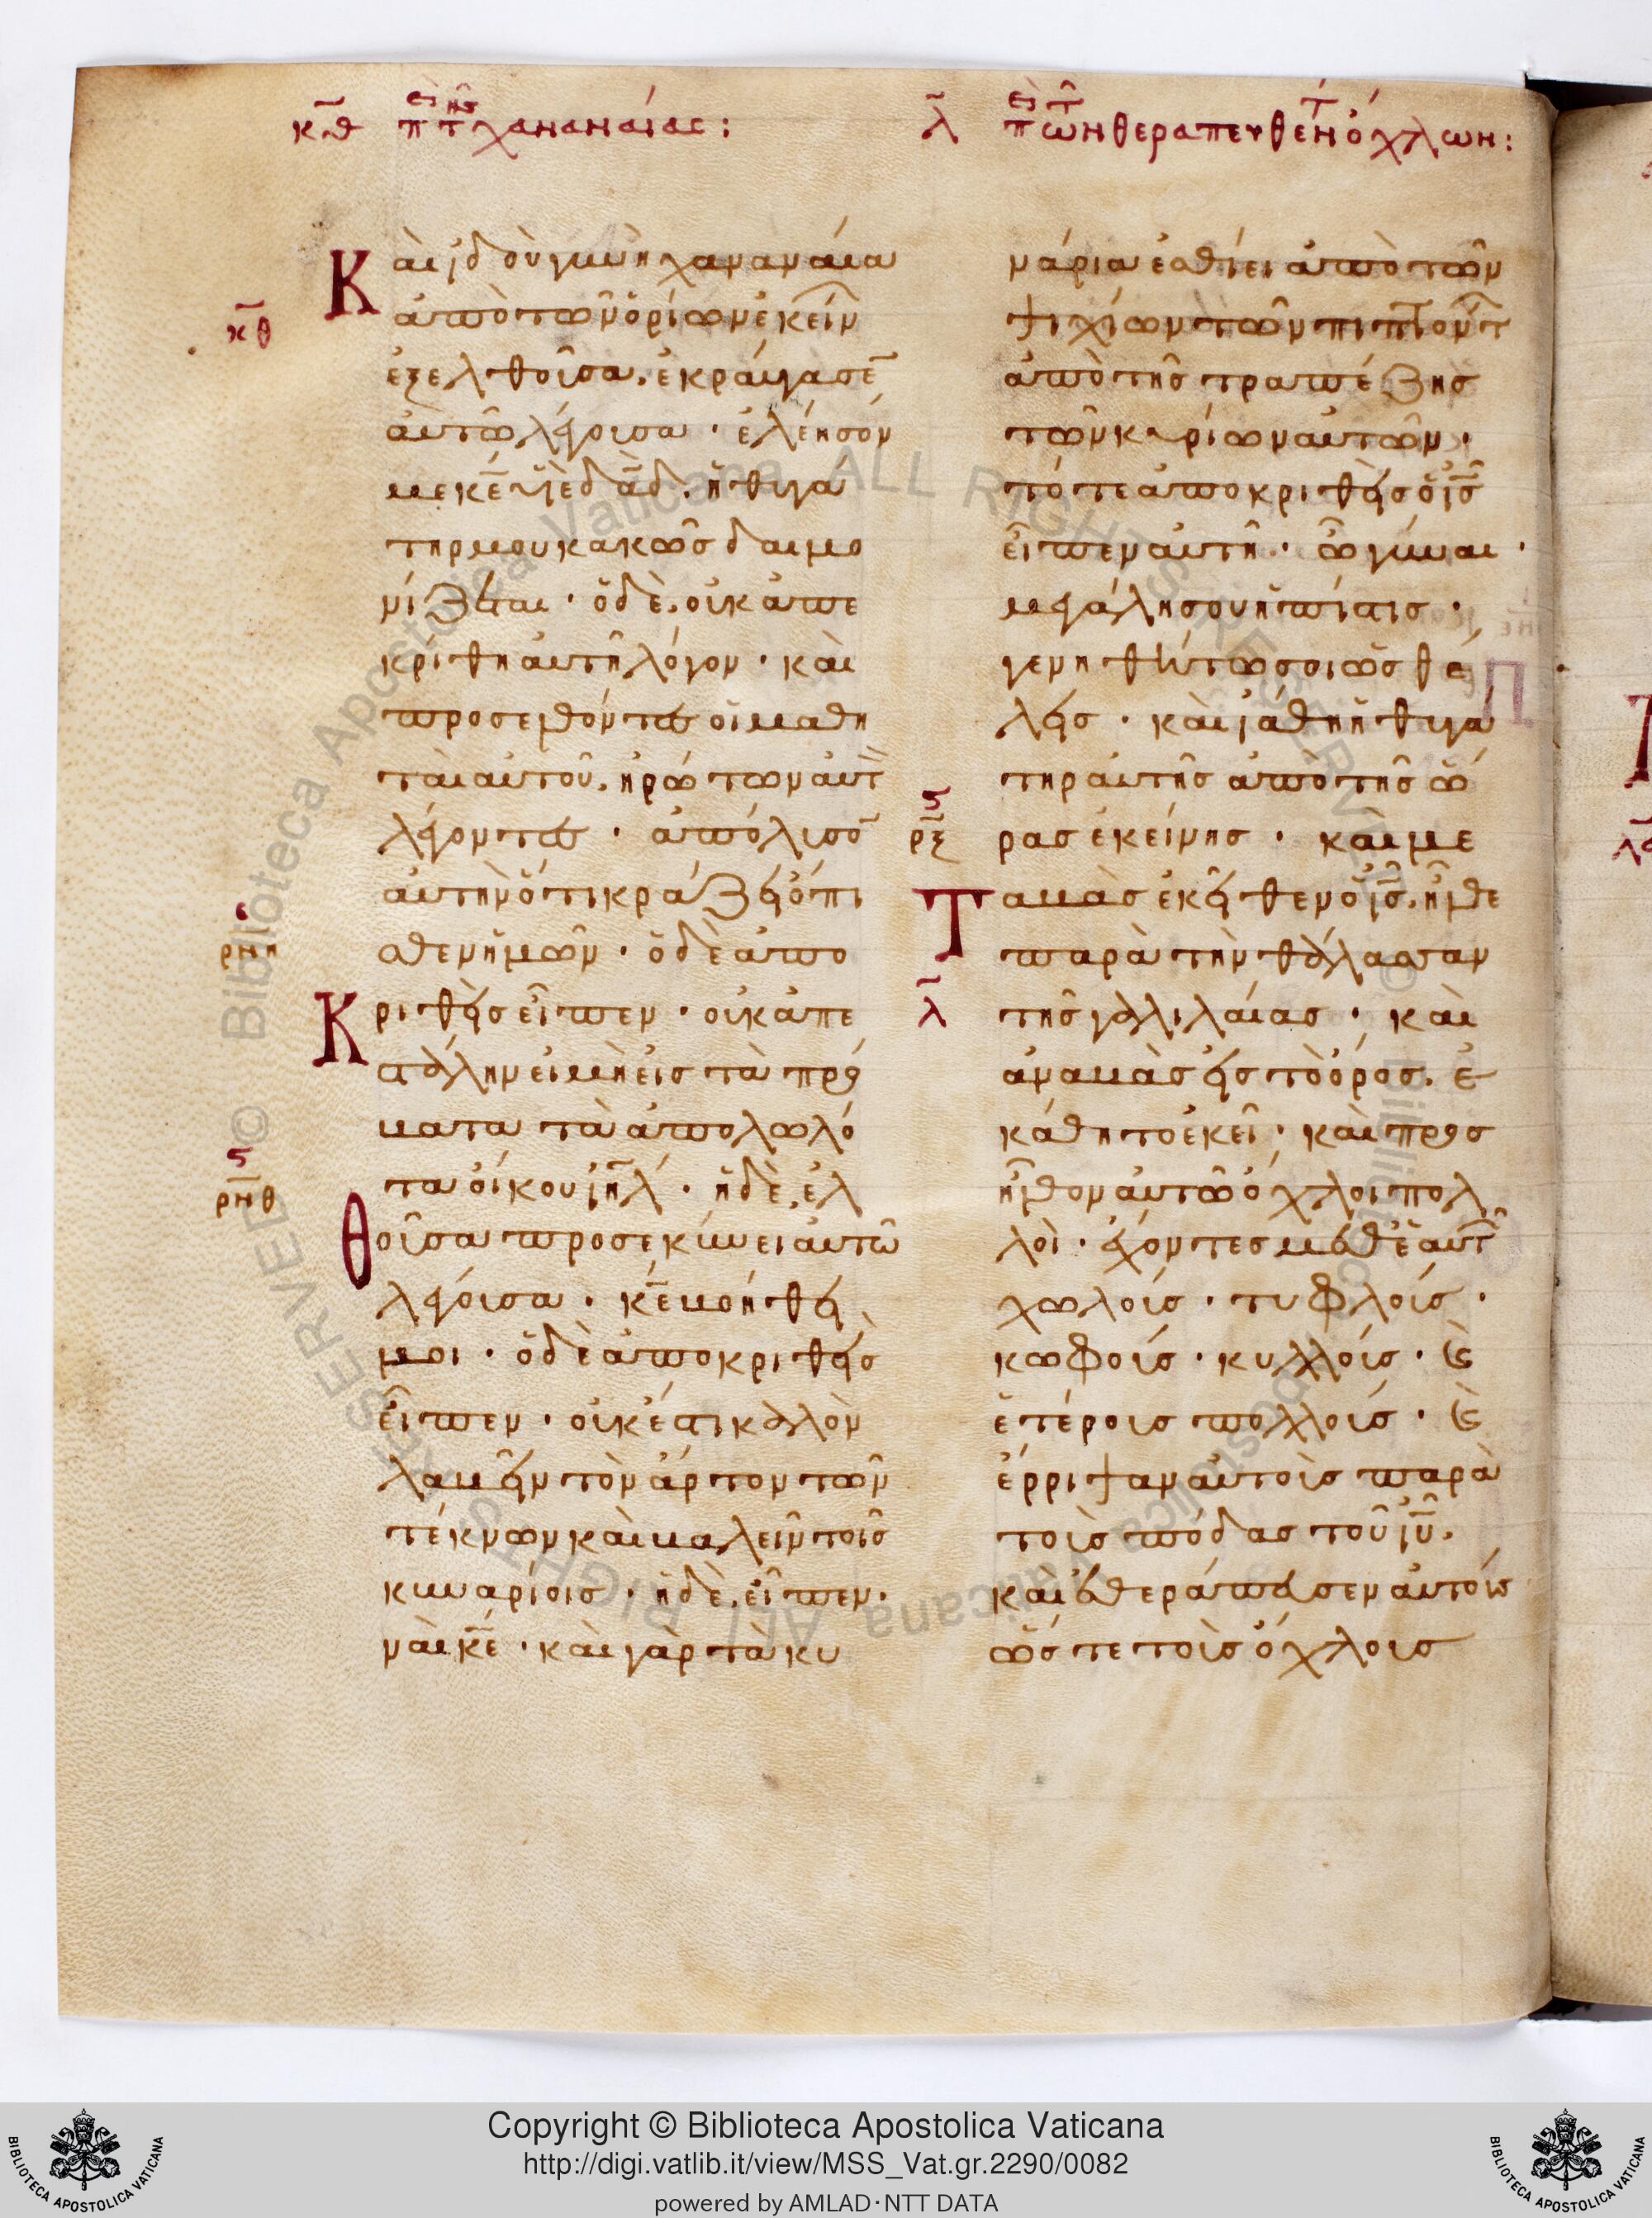 κθ περὶ τῆς χαναναίας :
λ περὶ τῶν θεραπευθέντ ὄχλων :
Καὶ ἰδοὺ γυνὴ χαναναία
κθ
ἀπὸ τῶν ὁρίων ἐκείν
ἐξελθοῦσα, ἐκραύγασε
αὐτῶ λέγουσα · ἐλέησόν
με κε υἱὲ δαδ, ἡ θυγά
τηρ μου κακῶς δαιμο
νίζεται · ὁ δὲ, οὐκ ἀπε
κρίθη αὐτῆ λόγον · καὶ
προσελθόντες οἱ μαθη
ταὶ αὐτοῦ, ἠρώτων αὐτ
λέγοντες · ἀπόλυσο
αὐτὴν ὅτι κράζει ὄπι
ρνη
σθεν ἡμῶν · ὁ δὲ ἀπο
Κριθεὶς εἶπεν · οὐκ ἀπε
στάλην εἰ μὴ εἰς τὰ πρό
βατα τὰ ἀπολωλό
ρνθ
τα οἴκου ιηλ · ἡ δὲ, ἐλ
Θοῦσα προσεκύνει αὐτῶ
λέγουσα · κε βοήθει
μοι · ὁ δὲ ἀποκριθεὶς
εἶπεν · οὐκ ἔστι καλὸν
λαβεῖν τὸν ἄρτον τῶν
τέκνων καὶ βαλεῖν τοῖς
κυναρίοις · ἡ δὲ, εἶπεν ·
ναὶ κε · καὶ γὰρ τὰ κυ
νάρια ἐσθίει ἀπὸ τῶν
ψιχίων τῶν πιπτόντ
ἀπὸ τῆς τραπέζης
τῶν κυρίων αὐτῶν ·
τότε ἀποκριθεὶς ὁ ις
εἶπεν αὐτῆ · ὦ γύναι ·
μεγάλη σου ἡ πίστις ·
γενηθήτω σοι ὡς θέ
λεις · καὶ ἰάθη ἡ θυγά
τηρ αὐτῆς ἀπὸ τῆς ὥ
ρξ
ρας ἐκείνης · καὶ με
Ταβὰς ἐκεῖθεν ὁ ις, ἦλθε
παρὰ τὴν θάλασσαν
λ
τῆς γαλιλαίας · καὶ
ἀναβὰς εἰς τὸ ὄρος, ἐ
κάθητο ἐκεῖ · καὶ προσ
ῆλθον αὐτῶ ὄχλοι πολ
λοὶ · ἔχοντες μεθ ἑαυτ
χωλούς · τυφλούς ·
κωφούς · κυλλούς · ϗ
ἑτέρους πολλούς · ϗ
ἔρριψαν αὐτοὺς παρὰ
τοὺς πόδας τοῦ ιυ,
καὶ ἐθεράπευσεν αὐτούς
ὥστε τοὺς ὄχλους
Copyright © Biblioteca Apostolica Vaticana
http://digi.vatlib.it/view/MSS_Vat.gr.2290/0082
powered by AMLAD·NTT DATA
BIBLIOTECA APOSTOLICA VATICANA
BIBLIOTECA APOSTOLICA VATICANA
© Biblioteca Apostolica Vaticana ALL RIGHTS RESERVED
© Biblioteca Apostolica Vaticana ALL RIGHTS RESERVED